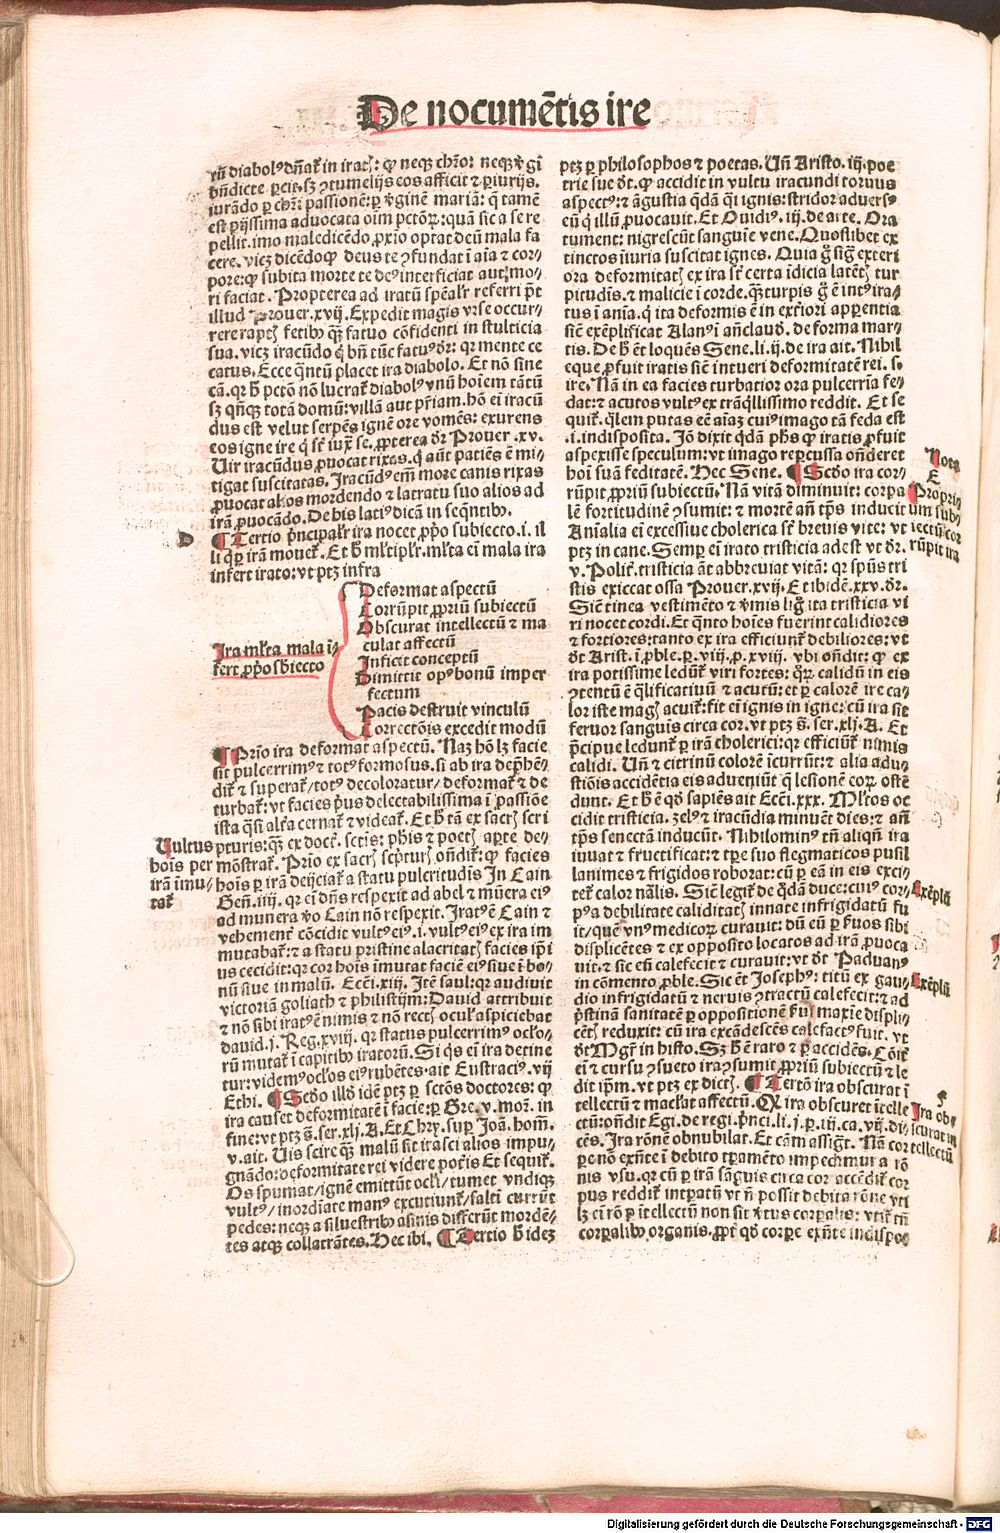 De nocumētis ire
rū diabolꝰ dn̄atͥ in iratꝭ: qꝫ neqꝫ chr̄o: neqꝫ ꝟgī
bn̄dicte ꝑcit. sꝫ ꝯtumelijs eos afficit ⁊ ꝑiurijs.
iurādo ꝑ chr̄i passionē: ꝑ ꝟginē mariā: q̄ tamē
est pijssima advocata oīm pctōꝝ: quā sic a se re
pellit. imo maledicēdo ꝓxīo optat deū mala fa
cere. vicꝫ dicēdo qꝫ deus te ꝯfundat ī aīa ⁊ cor-
pore: qꝫ subita morte te deꝰ interficiat aut mo-
ri faciat. Propterea ad iratū spēalr̄ referri pt̄
illud Prouer. xvij. Expedit magis vrse occur-
rere raptꝭ fetibꝰ qꝫ fatuo cōfidenti in stulticia
sua. vicꝫ iracūdo q̇ bn̄ tūc fatuꝰ dr̄: qꝛ mente ce
catus. Ecce q̄ntū placet ira diabolo. Et nō sine
cā. qꝛ ꝑ h̄ pctō nō lucratͥ diabolꝰ vnū hoiem tātū
sꝫ qn̄qꝫ totā domū: villā aut pr̄iam. hō eī iracū
dus est velut serpēs ignē ore vomēs: exurens
eos igne ire q̇ st̄ iux̄ se. ꝓpterea dr̄ Prouer. xv.
Uir iracūdus ꝓuocat rixas. q̇ aūt patiēs ē mi-
tigat suscitatas. Iracūdꝰ em̄ more canis rixas
ꝓuocat alios mordendo ⁊ latratu suo alios ad
irā ꝓuocādo. De his latiꝰ dicā in seq̄ntibꝰ.
D
¶ Tertio pͥncipalr̄ ira nocet ꝓpͥo subiecto. i. il
li qͥ ꝑ irā mouetͥ. Et h̄ ml̄tiplr̄. ml̄ta eī mala ira
infert irato: vt ptꝫ infra
Ira ml̄ta mala ī-
fert ꝓpͥo sbiecto
Deformat aspectū
Corrūpit ꝓpriū subiectū
Obscurat intellectū ⁊ ma
culat affectū
Inficit conceptū
Dimittit opꝰ bonū imper
fectum
Pacis destruit vinculū
Correctōis excedit modū
¶ Prīo ira deformat aspectū. Naꝫ hō lꝫ facie
sit pulcerrimꝰ ⁊ totꝰ formosus. si ab ira dep̄hē-
ditͥ ⁊ superatͥ/ totꝰ decoloratur/ deformatͥ ⁊ de
turbatͥ: vt facies pͥus delectabilissima ī passiōe
ista q̄si alt̄a cernatͥ ⁊ videatͥ. Et h̄ tā ex sacrꝭ scri
Uultus
hoīs per
irā īmu-
tatͥ
pturis: qꝫ ex doctͥ. sctīs: phīs ⁊ poetꝭ aꝑte de-
mōstratͥ. Prīo ex sacrꝭ scp̄turꝭ on̄ditͥ: qꝫ facies
hoīs ꝑ irā deijciatͥ a statu pulcritudīs In Cain
Gen̄. iiij. qꝛ eī dn̄s respexit ad abel ⁊ mūera eiꝰ
ad munera ꝟo Cain nō respexit. Iratꝰ ē Cain ⁊
vehementͥ cōcidit vultꝰ eiꝰ. i. vultꝰ eiꝰ ex ira im
mutabatͥ: ⁊ a statu pͥstine alacritatꝭ facies ip̄i
us cecidit: qꝛ cor hoīs imutat faciē eiꝰ siue ī bo-
nū siue in malū. Ecc̄i. xiij. Itē saul: qꝛ audiuit
victoriā goliath ⁊ philistijm: Dauid attribuit
⁊ nō sibi iratꝰ ē nimis ⁊ nō rectꝭ oculꝭ aspiciebat
dauid. j. Reg. xviij. qꝛ status pulcerrimꝰ oclo̅-
rū mutatͥ ī capitibꝰ iratorū. Si qͥs eī ira detine
tur: videmꝰ oclos eiꝰ rubētes. ait Eustraciꝰ. vij
Ethi. ¶ Scdo illd̄ idē ptꝫ ꝑ sctōs doctores: qꝫ
ira causet deformitatē ī facie: ꝑ Gre. v. mor̄. in
fine: vt ptꝫ s̄. ser. xlj. A. Et Chry. suꝑ Joā. hom̄.
v. ait. Uis scire qꝫ malū sit irasci alios impu-
gnādo: deformitatē rei videre poteris Et sequitͥ.
Os spumat/ ignē emittūt ocli/ tumet vndiqꝫ
vultꝰ/ inordiate manꝰ excutiuntͥ/ saltī currūt
pedes: neqꝫ a siluestribꝰ asinis differūt mordē-
tes atqꝫ collatrātes. Hec ibi. ¶ Tertio h̄ idez
ptꝫ ꝑ philosophos ⁊ poetas. Un̄ Aristo. iij. poe
trie sue dt̄. qꝫ accidit in vultu iracundi toruus
aspectꝰ: ⁊ āgustia q̄dā q̄i ignis: stridor aduersꝰ
eū q̇ illū ꝓuocauit. Et Ouidiꝰ. iij. de arte. Ora
tument: nigrescūt sanguīe vene. Quoslibet ex
tinctos iniuria suscitat ignes. Quia ḡ sig̃ exteri
ora deformitatꝭ ex ira st̄ certa īdicia latētꝭ tur
pitudīs. ⁊ malicie ī corde. qꝫ turpis ḡ ē intꝰ ira-
tus ī aīa. q̇ ita deformis ē in ext̄iori apparentia
sic̄ exēplificat Alanꝰ ī an̄claud̄. de forma mar-
tis. De h̄ et loquēs Sene. li. ij. de ira ait. Nihil
eque ꝓfuit iratis sic̄ intueri deformitatē rei. s.
ire. Nā in ea facies turbatior ora pulcerrīa fe-
dat: ⁊ acutos vultꝰ ex trāq̇llissimo reddit. Et se
quitͥ. q̄lem putas eē aīaꝫ cuiꝰ imago tā feda est
.i. indisposita. Jō dixit q̇dā phs̄ qꝫ iratis ꝓfuit
aspexisse speculum: vt imago reꝑcussa on̄deret
hoī suā feditatē. Hec Sene. ¶ Scdo ira cor-
Nota
E
Propriū
um subi
iectū cor
rūpit ira
rūpit ꝓpriū subiectū. Nā vitā diminuit: corpa
lē fortitudinē ꝯsumit: ⁊ mortē an̄ tp̄s inducit
Animalia eī excessiue cholerica st̄ breuis vite: vt
ptꝫ in cane. Semꝑ eī irato tristicia adest vt dr̄.
v. Politͥ. tristicia āt abbreuiat vitā: qꝛ spūs tri
stis exiccat ossa Prouer. xvij. Et ibidē. xxv. dr̄.
Sic̄ tinea vestimēto ⁊ ꝟmis lig̃ ita tristicia vi
ri nocet cordi. Et q̄nto hoīes fuerint calidiores
⁊ fortiores: tanto ex ira efficiuntͥ debiliores: vt
dt̄ Arist. ī ꝓble. ꝑ. viij. ꝓ. xviij. vbi on̄dit: qꝫ ex
ira potissime leduntͥ viri fortes: qꝛ calidū in eis
ꝯtentū ē q̄lificatiuū ⁊ acutū: et ꝑ calorē ire ca-
lor iste magꝭ acuitͥ: fit eī ignis in igne: cū ira sit
feruor sanguīs circa cor. vt ptꝫ s̄. ser. xlj. A. Et
pͥcipue leduntͥ ꝑ irā cholerici: qꝛ efficiuntͥ nimis
calidi. Un̄ ⁊ citrinū colorē īcurrūt: ⁊ alia adu-
stiōis accidētia eis adueniūt q̄ lesionē corꝑ. ostē
dunt. Et h̄ ē qd̄ sapiēs ait Ecc̄i. xxx. Ml̄tos oc
cidit tristicia. zelꝰ ⁊ iracūdia minuēt dies: ⁊ an̄
tp̄s senectā inducūt. Nihilominꝰ tn̄ aliqn̄ ira
iuuat ⁊ fructificat: ⁊ tꝑe suo flegmaticos pusil
lanimes ⁊ frigidos roborat: cū ꝑ eā in eis exci-
Exēplū
tetͥ calor nālis. Sic̄ legitͥ de q̄dā duce: cuiꝰ cor-
pꝰ a debilitate caliditatꝭ innate infrigidatū fu
it/ quē vnꝰ medicoꝝ curauit: dū eū ꝑ ẜuos sibi
displicētes ⁊ ex opposito locatos ad irā ꝓuoca
uit. ⁊ sic eū calefecit ⁊ curauit: vt dt̄ Paduanꝰ
Exēplū
in cōmento ꝓble. Sic ēt Josephꝰ: titū ex gau-
dio infrigidatū ⁊ neruis ꝯtractū calefecit: ⁊ ad
pͥstinā sanitatē ꝑ oppositionē ẜui maxīe displi-
cētꝭ reduxit: cū ira excādescēs calefactꝰ fuit. vt
dt̄ Mgr̄ in histo. Sꝫ h̄ ē raro ⁊ ꝑ accidēs. Cōitͥ
eī ⁊ cursu ꝯsueto ira ꝯsumit ꝓpriū subiectū ⁊ le
dit ip̄m. vt ptꝫ ex dictꝭ. ¶ Tertō ira obscurat ī
F
Ira obs
scurat in
tellectū
tellectū ⁊ maclat affectū. Qꝫ ira obscuret ītelle
ctū: on̄dit Egi. de regi. pͥnci. li. j. ꝑ. iij. ca. vij. di-
cēs. Ira rōnē obnubilat. Et cām assigt̄. Nā cor
pe nō exn̄te ī debito tꝑamēto impeditur a rō
nis vsu. qꝛ cū ꝑ irā sāguis circa cor accēditͥ cor
pus redditͥ intꝑatū vt nō possit debita rōne vti
lꝫ eī rō ꝑ itellectū non sit ꝟtus corꝑalis: vtitͥ tn̄
corꝑalibꝰ organis. ꝓpt̄ qd̄ corꝑe exn̄te indispo
Digitalisierung gefördert durch die Deutsche Forschungsgemeinschaft - DFG